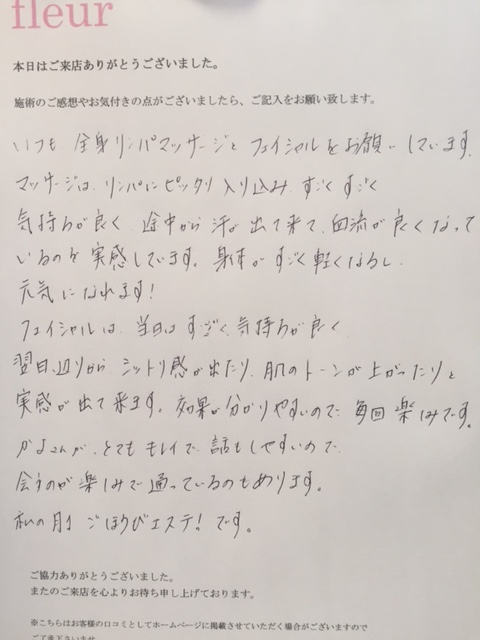 fleur
本日はご来店ありがとうございました。
施術のご感想やお気付きの点がございましたら、ご記入をお願い致します。
いつも 全身リンパマッサージと フェイシャルをお願いしています。
マッサージは、リンパにピッタリ 入り込み すごくすごく
気持ちが良く 途中から 汗が出て来て、血流が良くなって
いるのを実感しています。身体がすごく軽くなるし
元気になれます!
フェイシャルは、当日はすごく気持ちが良く
翌日辺りから シットリ感が出たり、肌のトーンが上がったりと
実感が出て来ます。効果が分かりやすいので 毎回楽しみです。
がとてもキレイで 話もしやすいので
会うのが楽しみで通っているのもあります。
私の月1 ごほうびエステ! です。
ご協力ありがとうございました。
またのご来店を心よりお待ち申し上げております。
※こちらはお客様の口コミとしてホームページに掲載させていただく場合がございますので
ご了承下さいませ